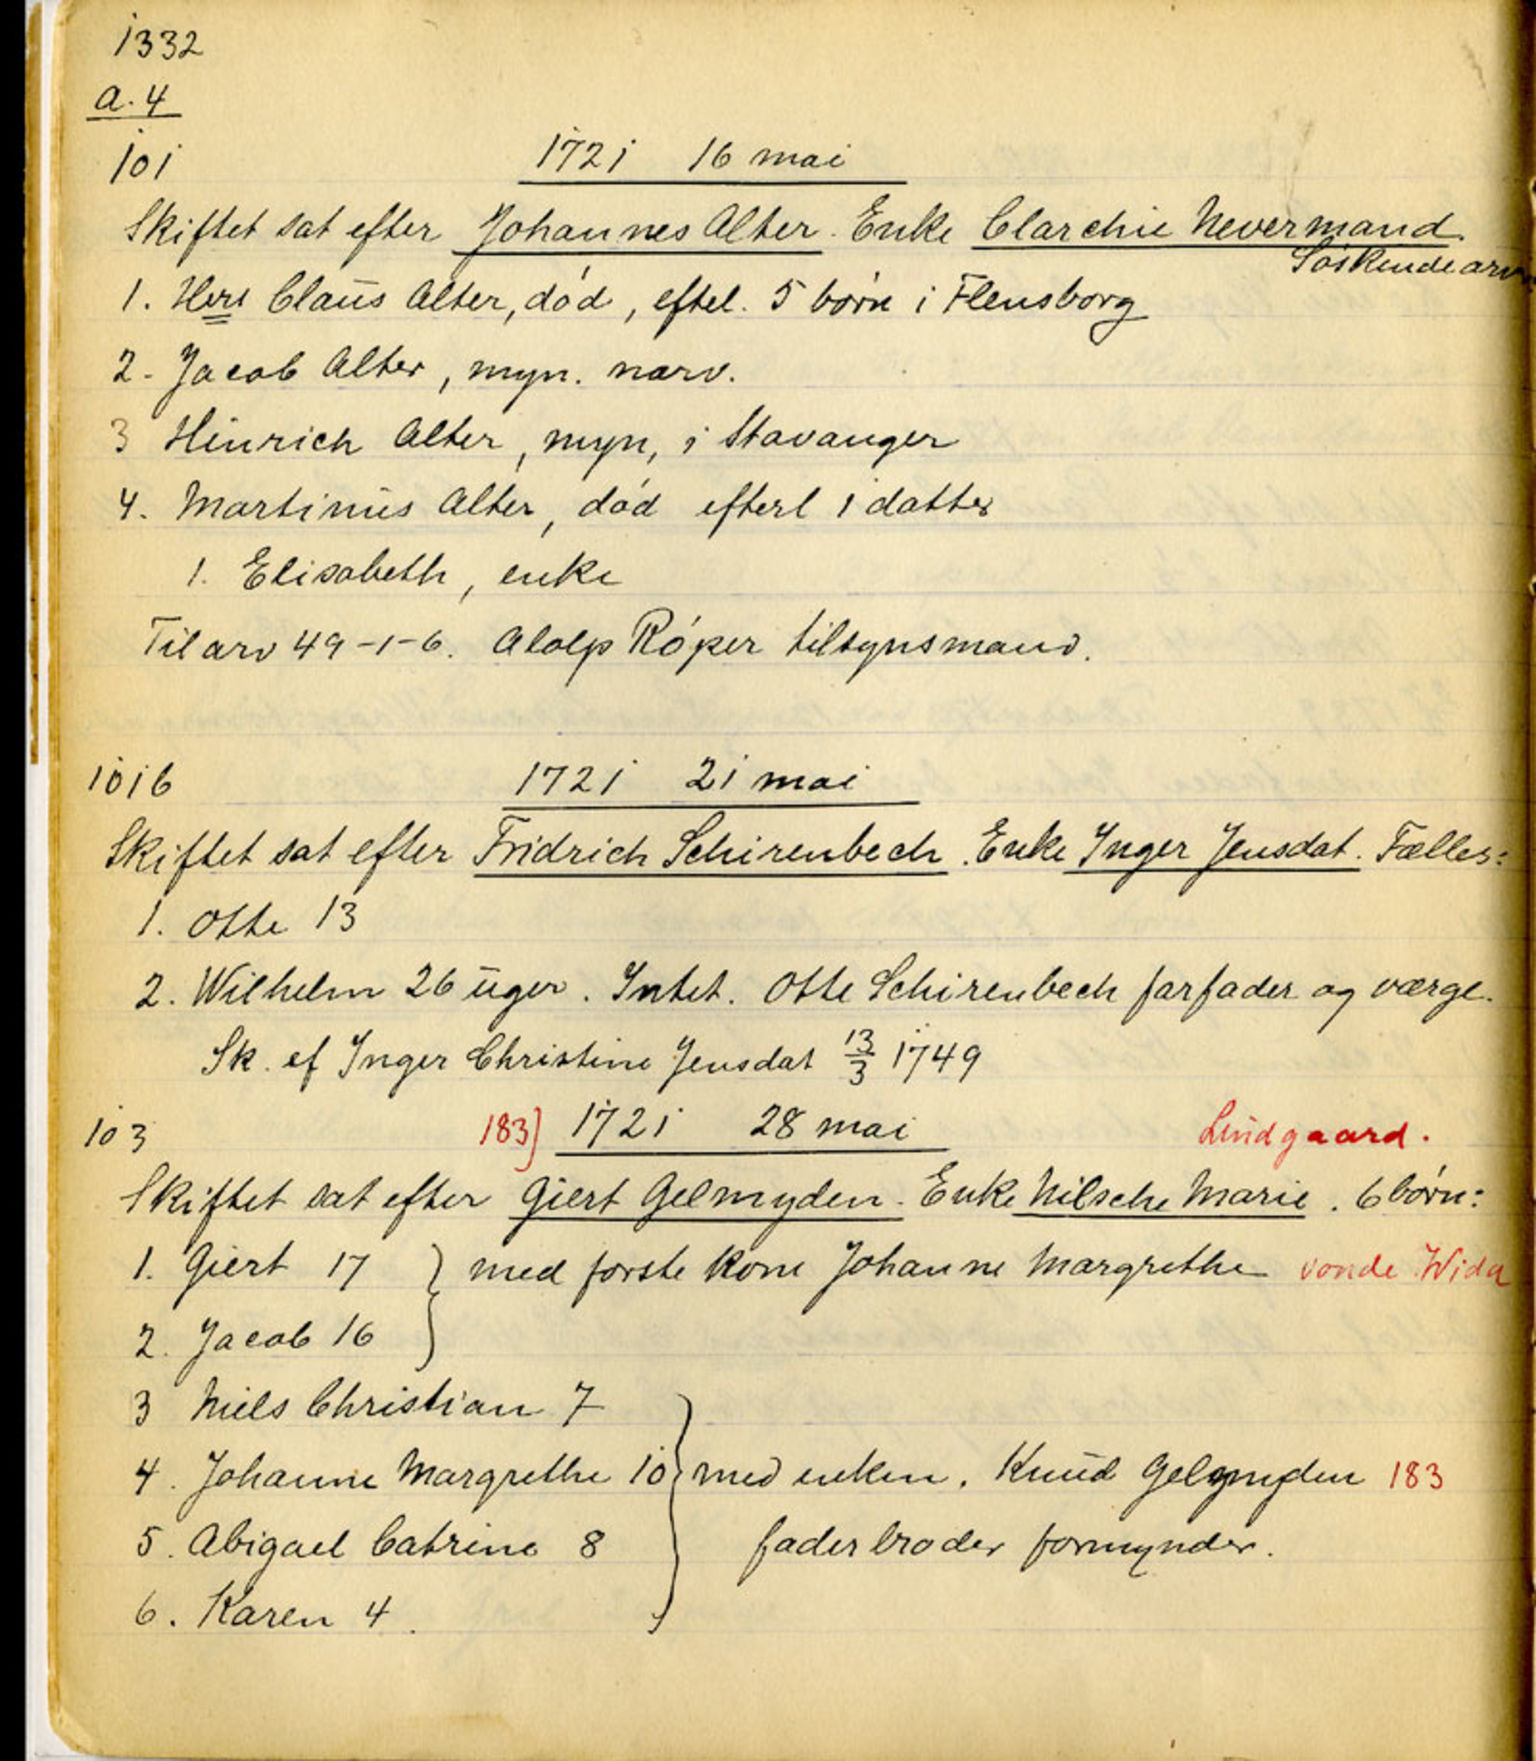 1332
a. 4
101 1721 16 mai
Skiftet sat efter Johannes Alter. Enke Clarchie Nevermand.
Söskendearv
1. Herr Claus Alter, död, eftel. 5 börn i Flensborg
2. Jacob Alter, myn. nærv.
3 Hinrich Alter, myn, i Stavanger
4. Martinus Alter, död efterl 1 datter
1. Elisabeth, enke
Til arv 49-1-6. Alolp Röper tilsynsmand.
101b 1721 21 mai
Skiftet sat efter Fridrich Schirenbech. Enke Inger Jensdat. Fælles:
1. Otte 13
2. Wilhelm 26 uger. Intet. Otte Schirenbech farfader og værge.
Sk. ef Inger Christine Jensdat 13/3 1749
103 183] 1721 28 mai Lindgaard.
Skiftet sat efter Giert Gelmyden. Enke Nilsche Marie. 6 börn:
1. Giert 17 } med förste kone Johanne Margrethe vonde Wida
2. Jacob 16
3 Niels Christian 7
4. Johanne Margrethe 10 } med enken. Knud Gelmyden 183
5. Abigael Catrine 8 faderbroder formynder.
6. Karen 4.